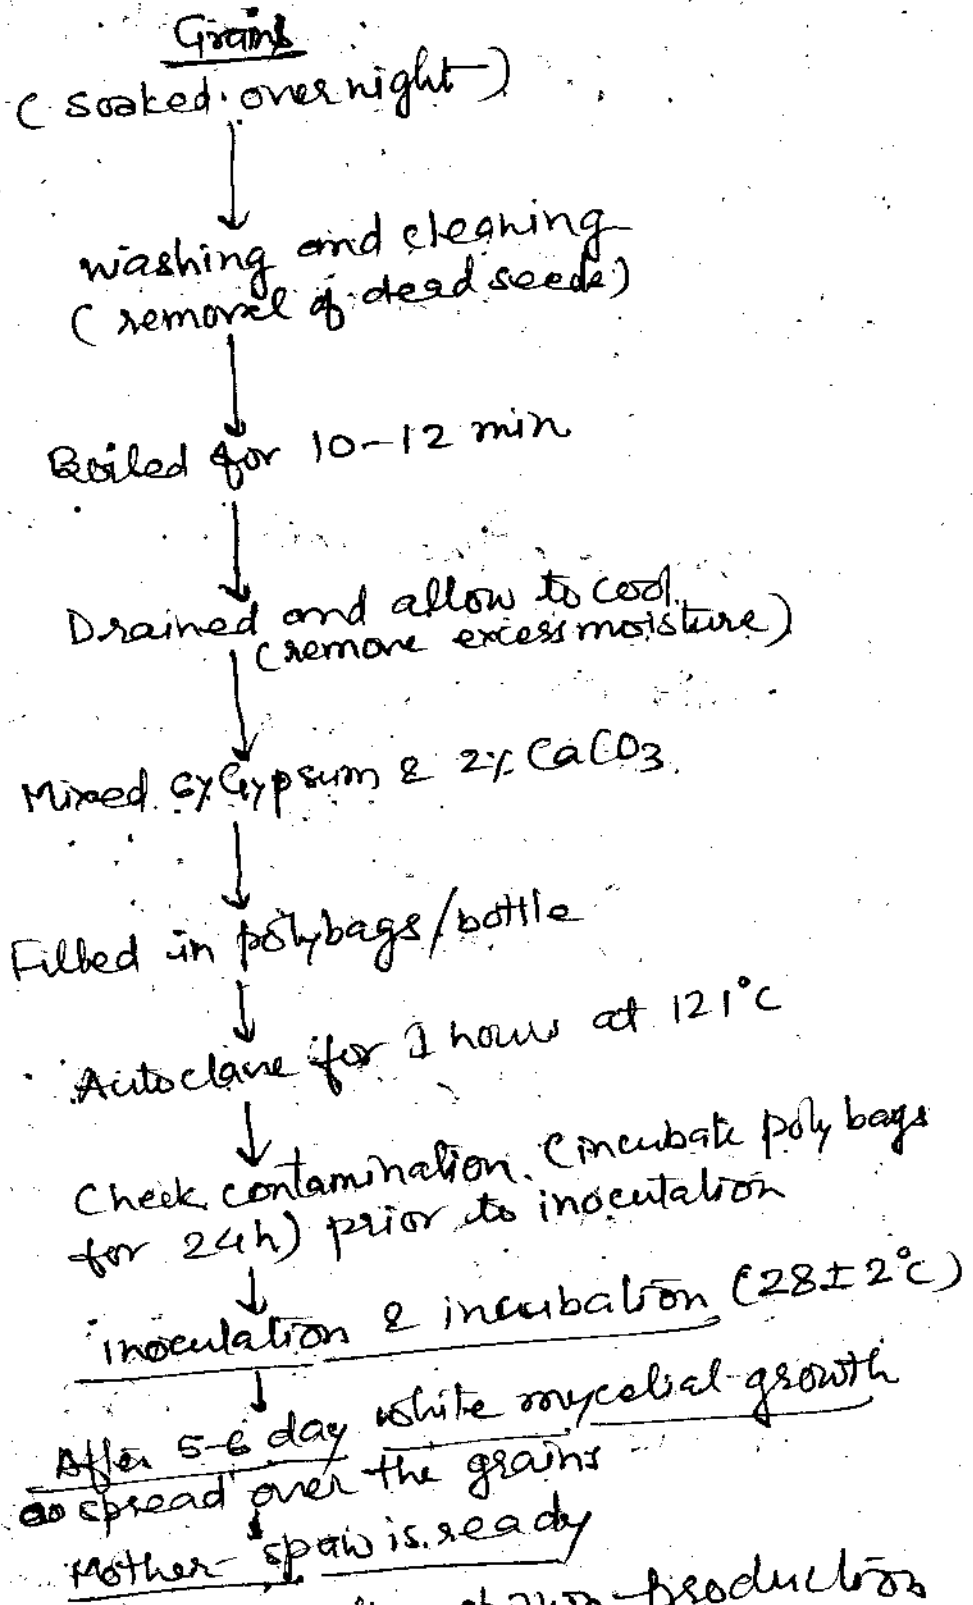 Grains
(soaked overnight)
washing and cleaning
(removel of dead seeds)
Boiled for 10-12 min
Drained and allow to cool.
(remove excess moisture)
Mixed 6% Gypsum & 2% CaCO3.
Filled in polybags/bottle
Autoclave for hours at 121°C
Check contamination. (incubate poly bags
for 24h) prior to inoculation
inoculation & incubation (28±2°C)
After 5-6 day white mycelial growth
spread over the grains
Mother-spaw is ready
production